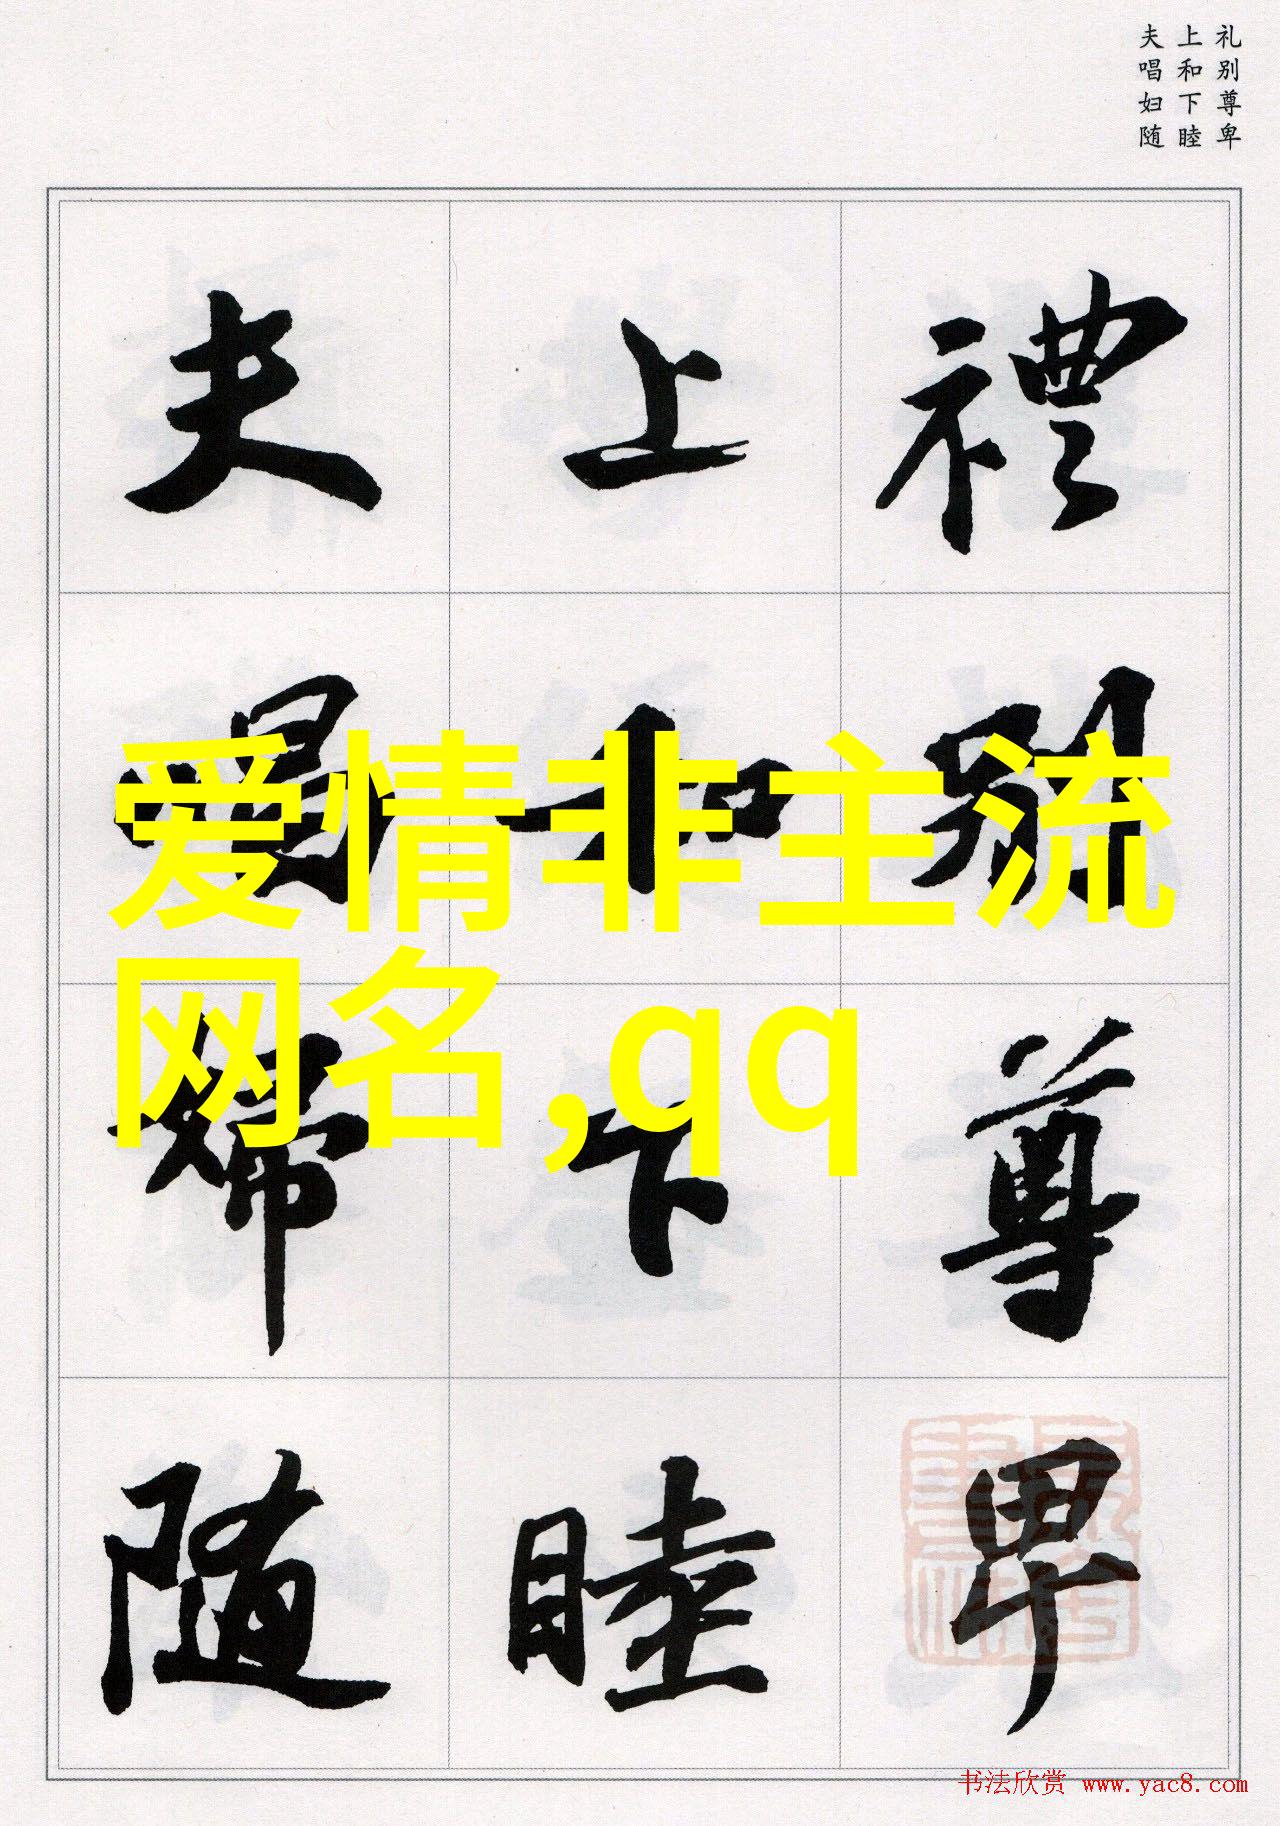 礼别尊卑
上和下睦
夫唱妇随
禮別尊卑
上和下睦
夫唱婦随
爱情非主流
网名,qq
书法欣赏 www.yac8.com